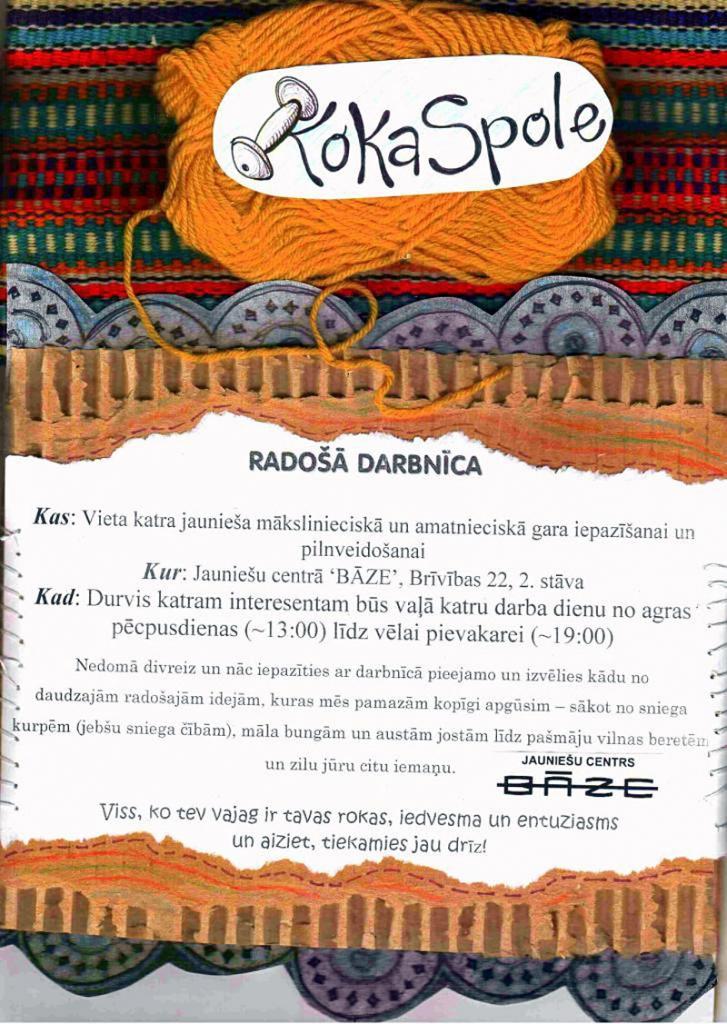 KokaSpole
RADOŠĀ DARBNĪCA
Kas: Vieta katra jaunieša mākslinieciskā un amatnieciskā gara iepazīšanai un
pilnveidošanai
Kur: Jauniešu centrā ‘BĀZE’, Brīvības 22, 2. stāva
Kad: Durvis katram interesentam būs vaļā katru darba dienu no agras
pēcpusdienas (~13:00) līdz vēlai pievakarei (~19:00)
Nedomā divreiz un nāc iepazīties ar darbnīcā pieejamo un izvēlies kādu no
daudzajām radošajām idejām, kuras mēs pamazām kopīgi apgūsim – sākot no sniega
kurpēm (jebšu sniega čībām), māla bungām un austām jostām līdz pašmāju vilnas beretēm
un zilu jūru citu iemaņu.
JAUNIEŠU CENTRS
BĀZE
Viss, ko tev vajag ir tavas rokas, iedvesma un entuziasms
un aiziet, tiekamies jau drīz!